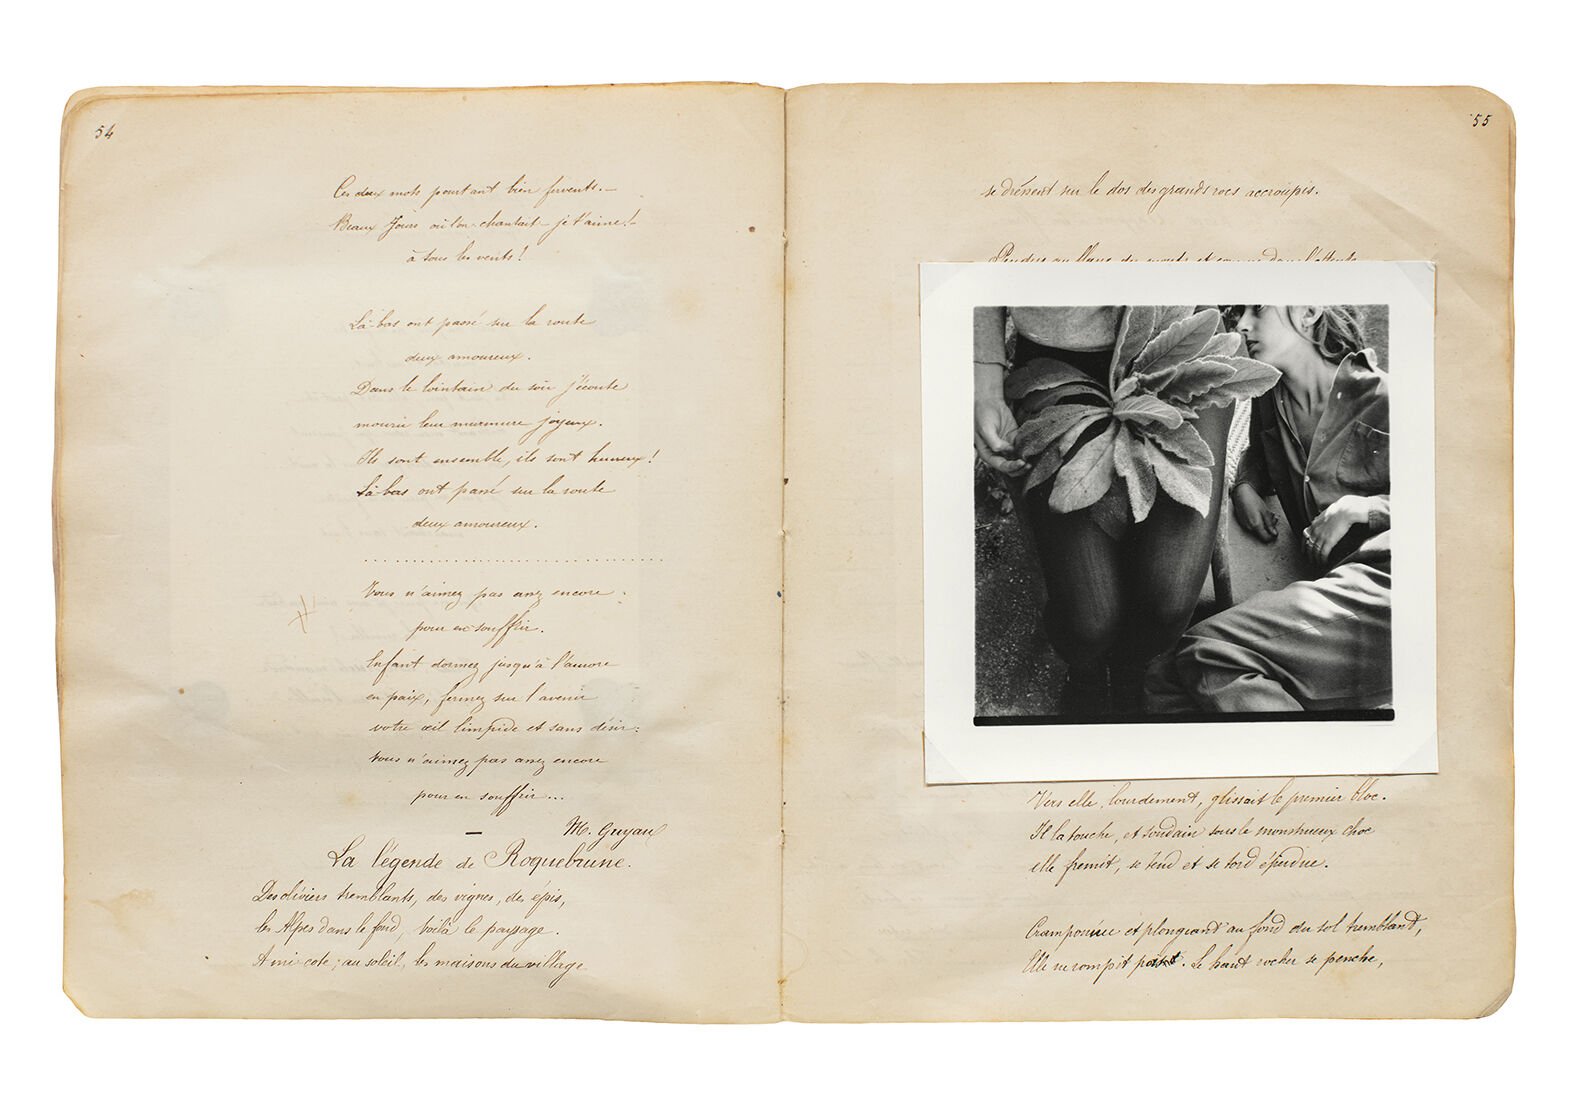 54
Ces deux mots pourtant bien fervents. –
Beaux Jours où l'on chantait – je t'aime! –
à tous les vents!
Là-bas ont passé sur la route
deux amoureux.
Dans le lointain du soir j'écoute
mourir leur murmure joyeux.
Ils sont ensemble, ils sont heureux!
Là-bas ont passé sur la route
deux amoureux.
Vous n'aimez pas assez encore
pour en souffrir.
Enfant dormez jusqu'à l'aurore
en paix, fermez sur l'avenir
votre œil limpide et sans désir:
Vous n'aimez pas assez encore
pour en souffrir...
M. Guyau
La légende de Roquebrune.
Des oliviers tremblants, des vignes, des épis,
les Alpes dans le fond, voilà le paysage.
A mi-cote; au soleil, les maisons du village
55
se dressent sur le dos des grands rocs accroupis.
Vers elle, lourdement, glissait le premier bloc.
Il la touche, et soudain sous le monstrueux choc
elle frémit, se tend et se tord éperdue.
Cramponnée et plongeant au fond du sol tremblant,
Elle ne rompit point. Le haut rocher se penche,